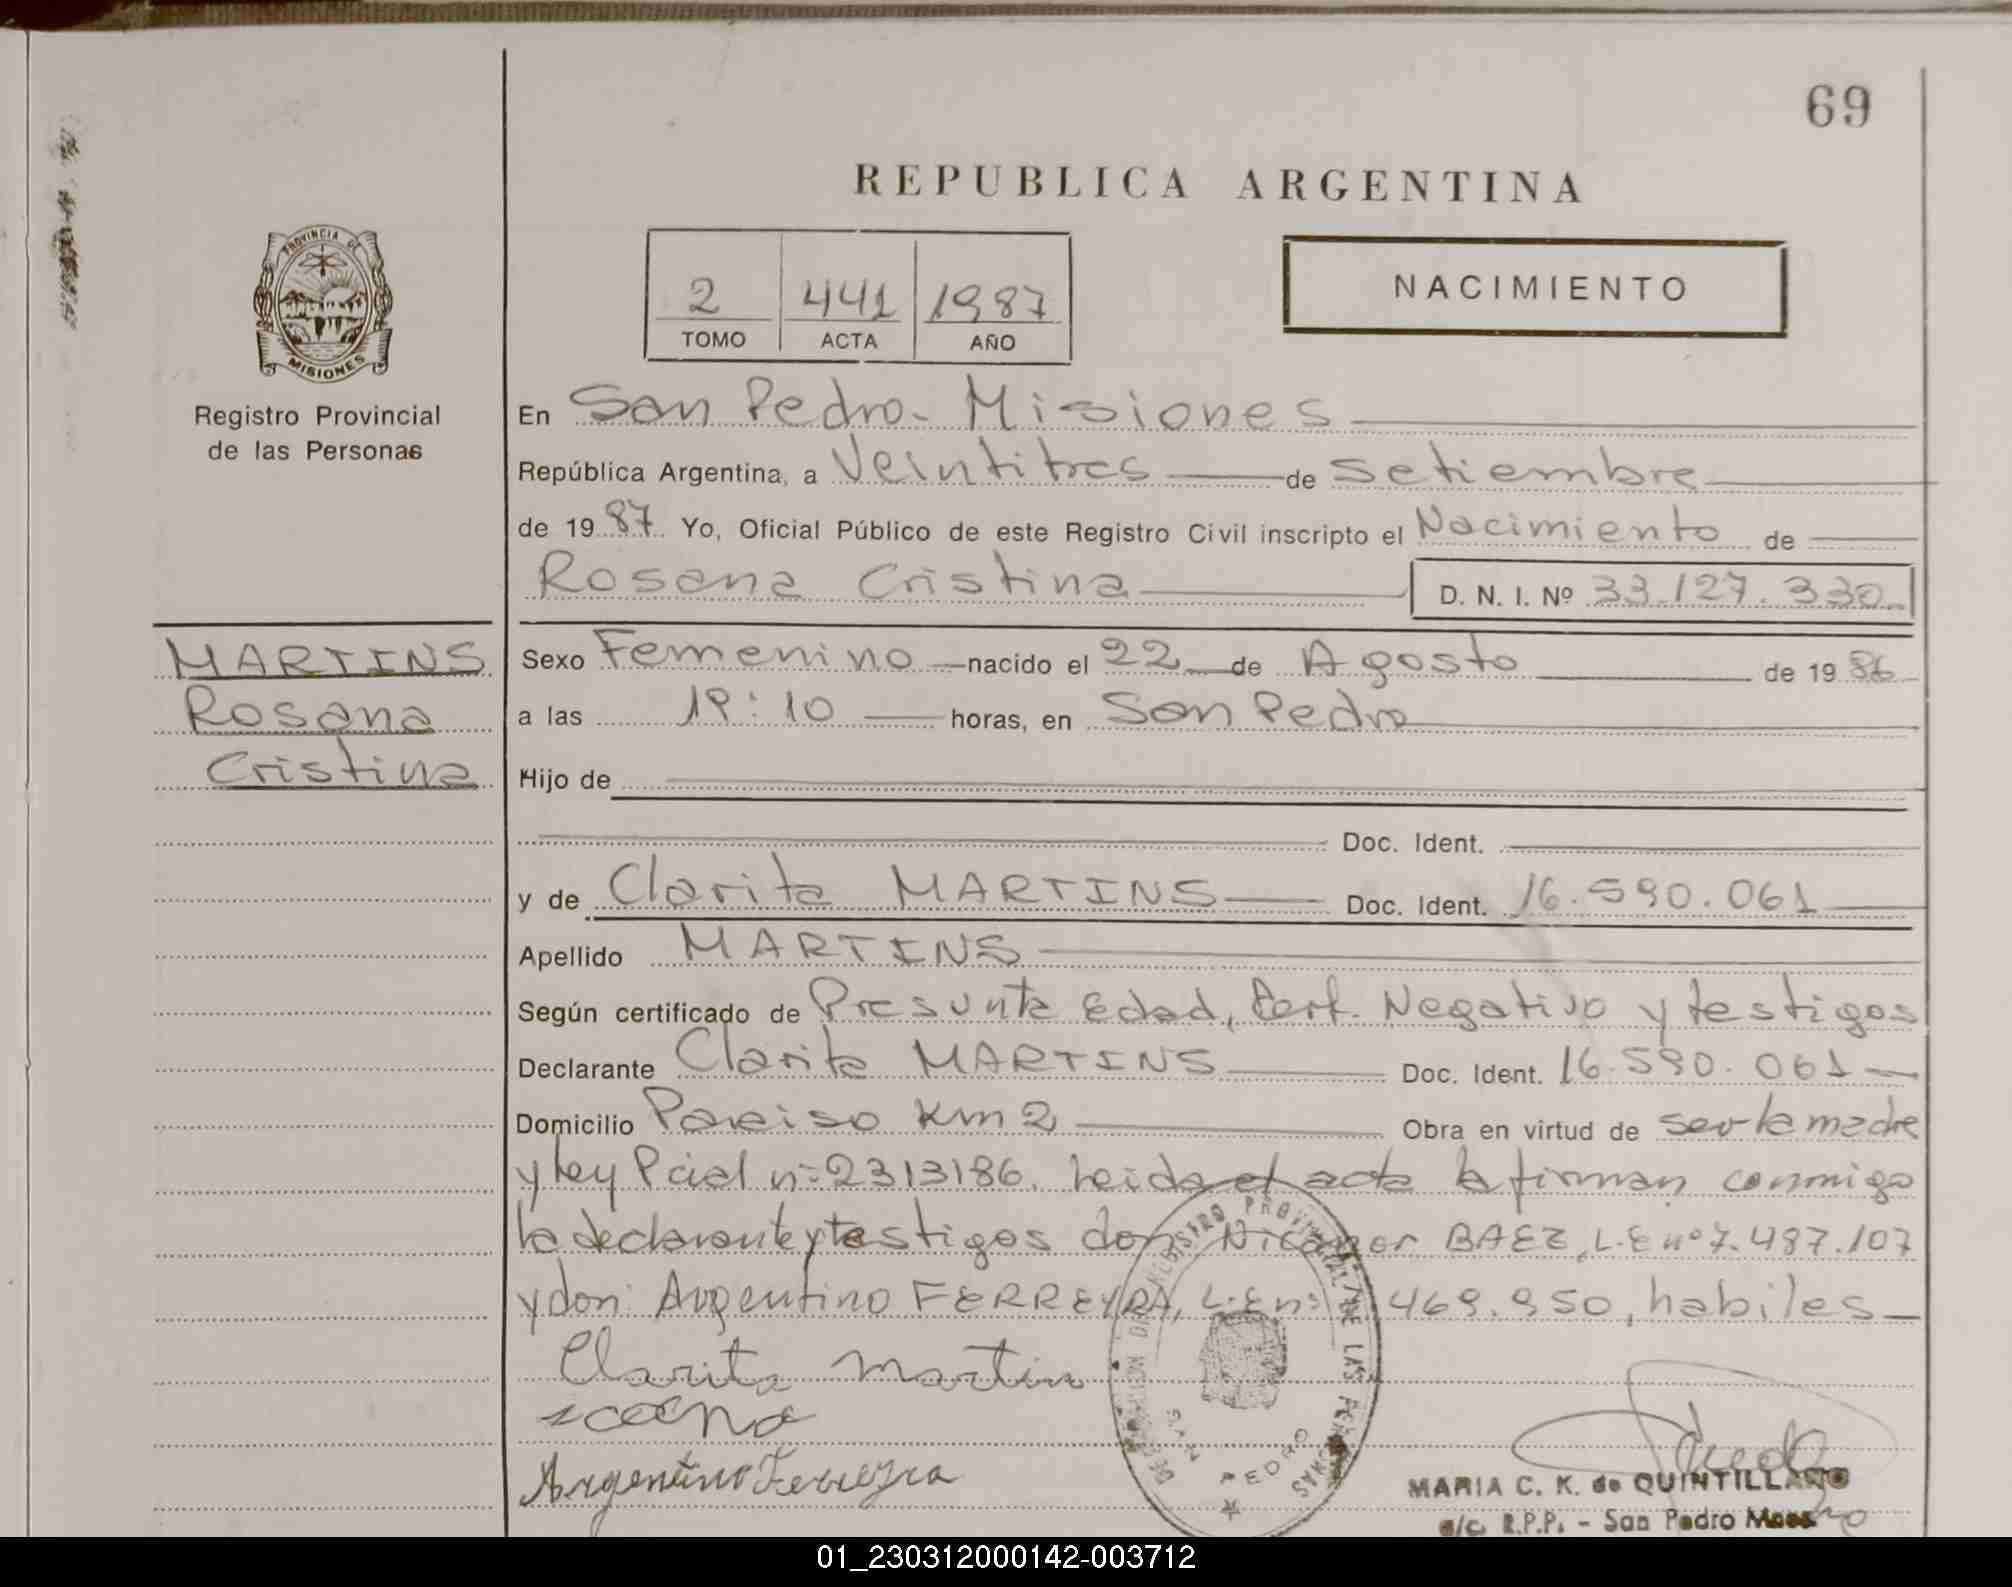 69
REPUBLICA ARGENTINA
2 441 1987
TOMO ACTA AÑO
NACIMIENTO
PROVINCIA DE
MISIONES
Registro Provincial
de las Personas
En San Pedro - Misiones
República Argentina, a Veintitres de setiembre
de 19 87. Yo, Oficial Público de este Registro Civil inscripto el Nacimiento de
Rosana Cristina D. N. I. Nº 33.127.330
MARTINS
Rosana
Cristina
Sexo Femenino nacido el 22 de Agosto de 19 86
a las 19:10 horas, en San Pedro
Hijo de
Doc. Ident.
y de Clarita MARTINS Doc. Ident. 16.590.061
Apellido MARTINS
Según certificado de Presunta edad, Cert. Negativo y testigos
Declarante Clarita MARTINS Doc. Ident. 16.590.061
Domicilio Paraiso Km 2 Obra en virtud de ser la madre
y Ley Pcial nº 2313/86. Leida el acta la firman conmigo
la declarante y testigos don Nicanor BAEZ, L.E nº 7.487.107
y don Argentino FERREYRA, L.E nº 469.950, habiles
Clarita Martin
Argentino Ferreyra
DELEGACION DEL REGISTRO PROVINCIAL DE LAS PERSONAS
SAN PEDRO
MARIA C. K. de QUINTILLANO
a/c. R.P.P. - San Pedro Mnes
01_230312000142-003712